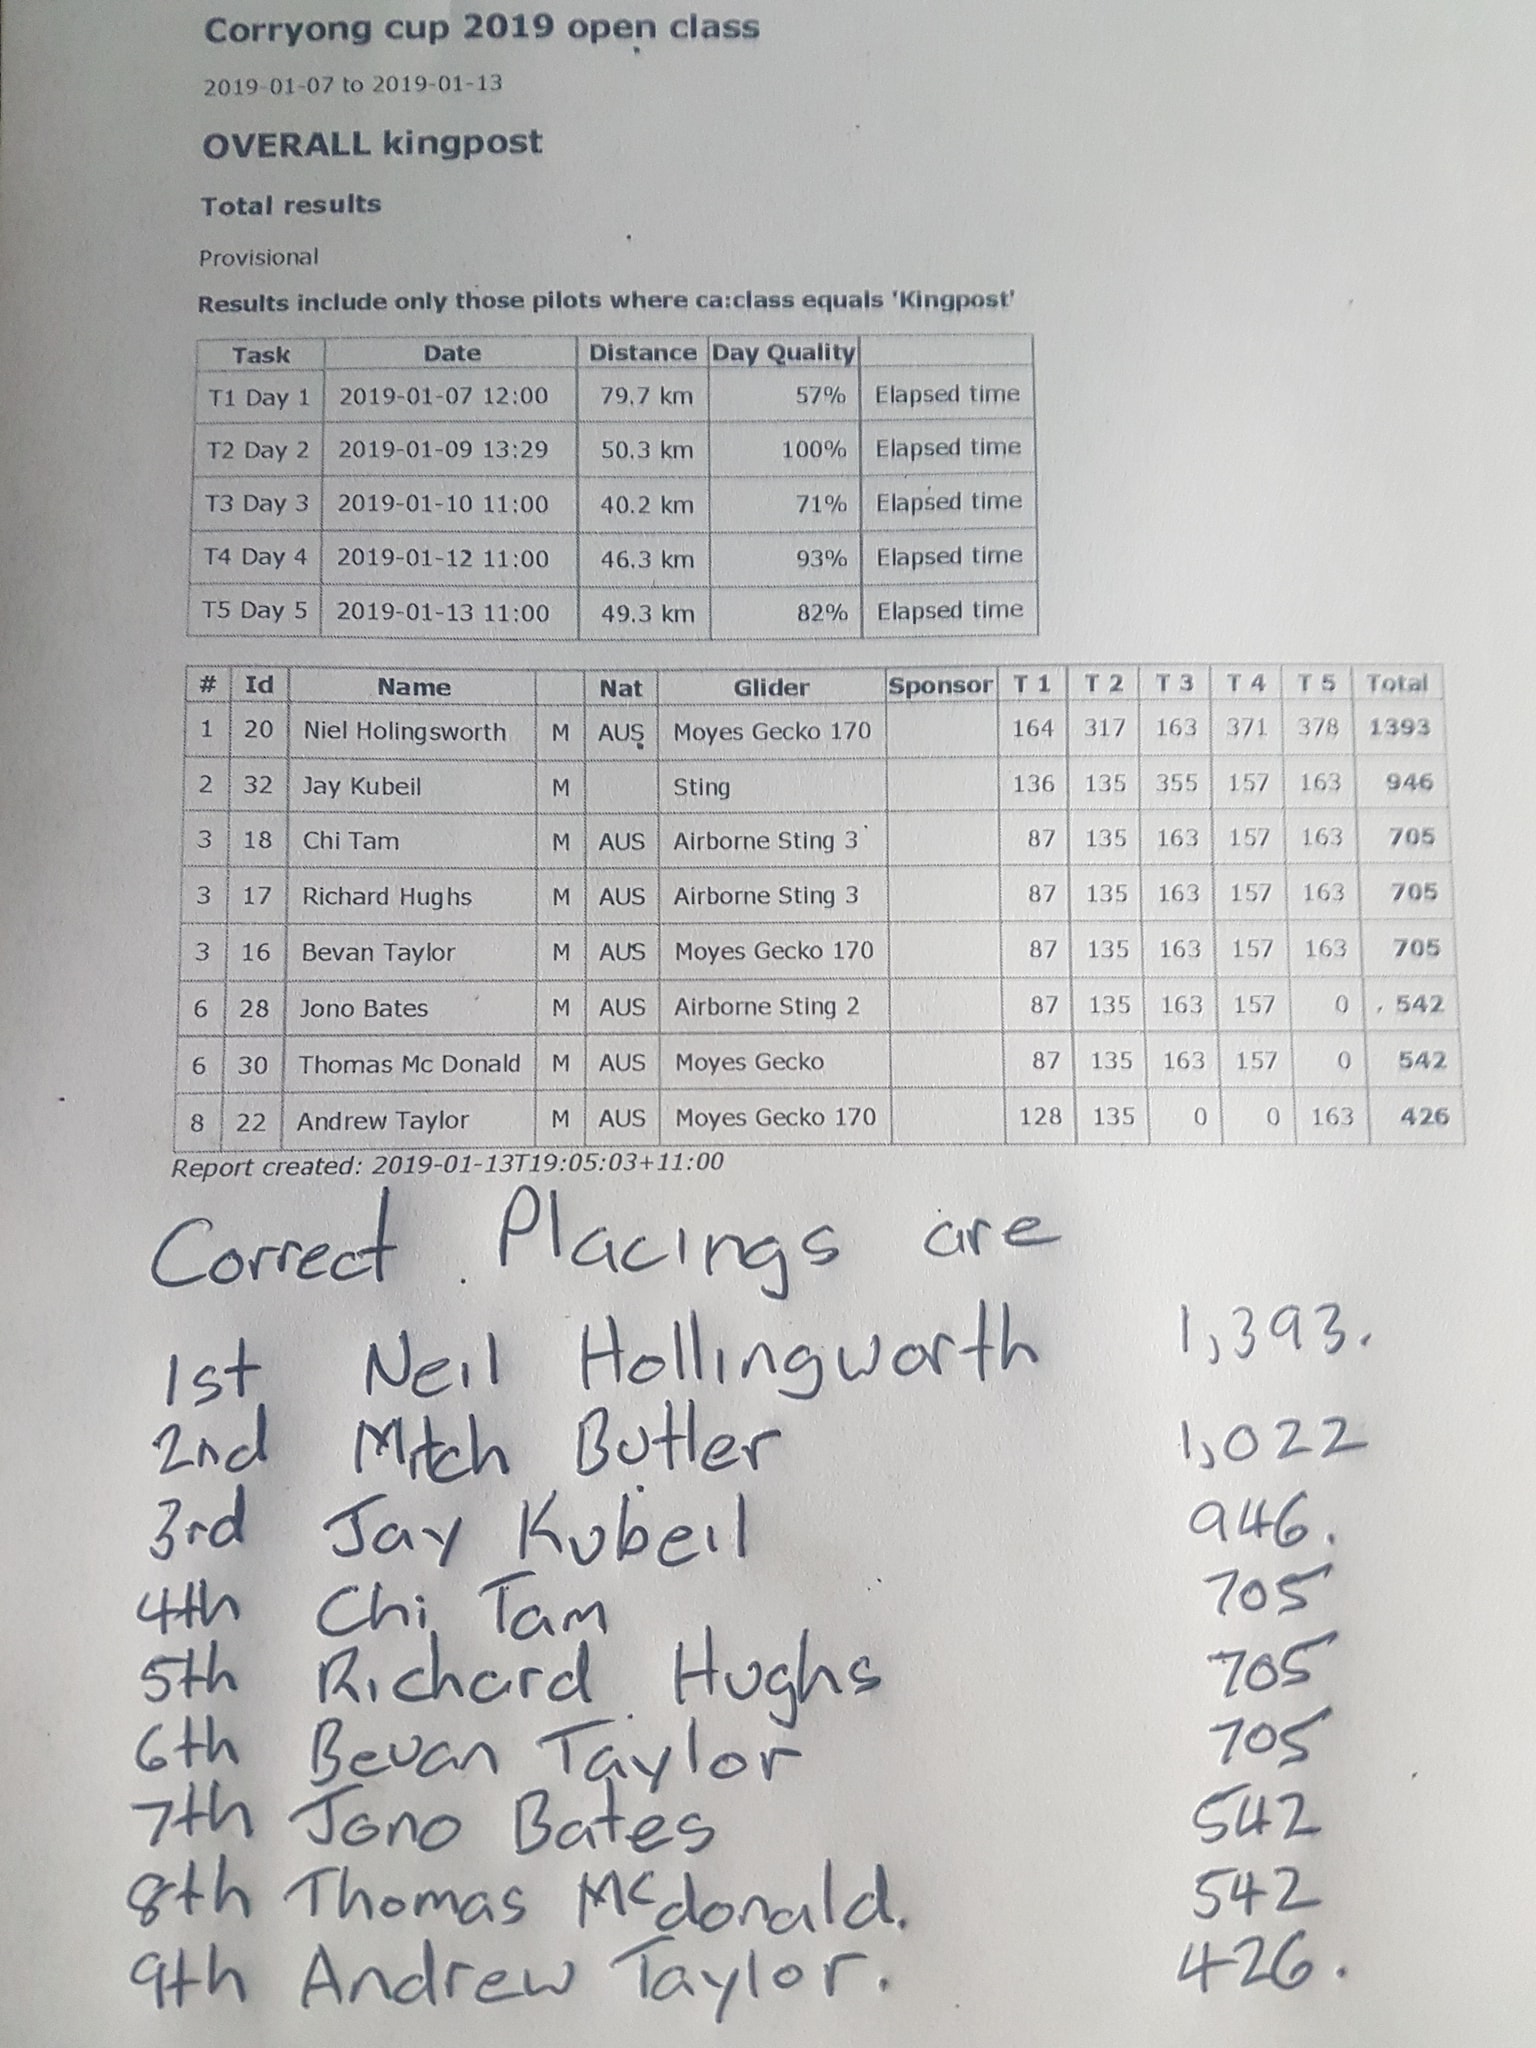 Corryong cup 2019 open class
2019-01-07 to 2019-01-13
OVERALL kingpost
Total results
Provisional
Results include only those pilots where ca:class equals 'Kingpost'
Task Date Distance Day Quality
T1 Day 1 2019-01-07 12:00 79.7 km 57% Elapsed time
T2 Day 2 2019-01-09 13:29 50.3 km 100% Elapsed time
T3 Day 3 2019-01-10 11:00 40.2 km 71% Elapsed time
T4 Day 4 2019-01-12 11:00 46.3 km 93% Elapsed time
T5 Day 5 2019-01-13 11:00 49.3 km 82% Elapsed time
# Id Name Nat Glider Sponsor T 1 T 2 T 3 T 4 T 5 Total
1 20 Niel Holingsworth M AUS Moyes Gecko 170 164 317 163 371 378 1393
2 32 Jay Kubeil M Sting 136 135 355 157 163 946
3 18 Chi Tam M AUS Airborne Sting 3 87 135 163 157 163 705
3 17 Richard Hughs M AUS Airborne Sting 3 87 135 163 157 163 705
3 16 Bevan Taylor M AUS Moyes Gecko 170 87 135 163 157 163 705
6 28 Jono Bates M AUS Airborne Sting 2 87 135 163 157 0 542
6 30 Thomas Mc Donald M AUS Moyes Gecko 87 135 163 157 0 542
8 22 Andrew Taylor M AUS Moyes Gecko 170 128 135 0 0 163 426
Report created: 2019-01-13T19:05:03+11:00
Correct Placings are
1st Neil Hollingworth 1,393.
2nd Mitch Butler 1,022
3rd Jay Kubeil 946.
4th Chi Tam 705
5th Richard Hughs 705
6th Bevan Taylor 705
7th Jono Bates 542
8th Thomas Mcdonald. 542
9th Andrew Taylor. 426.